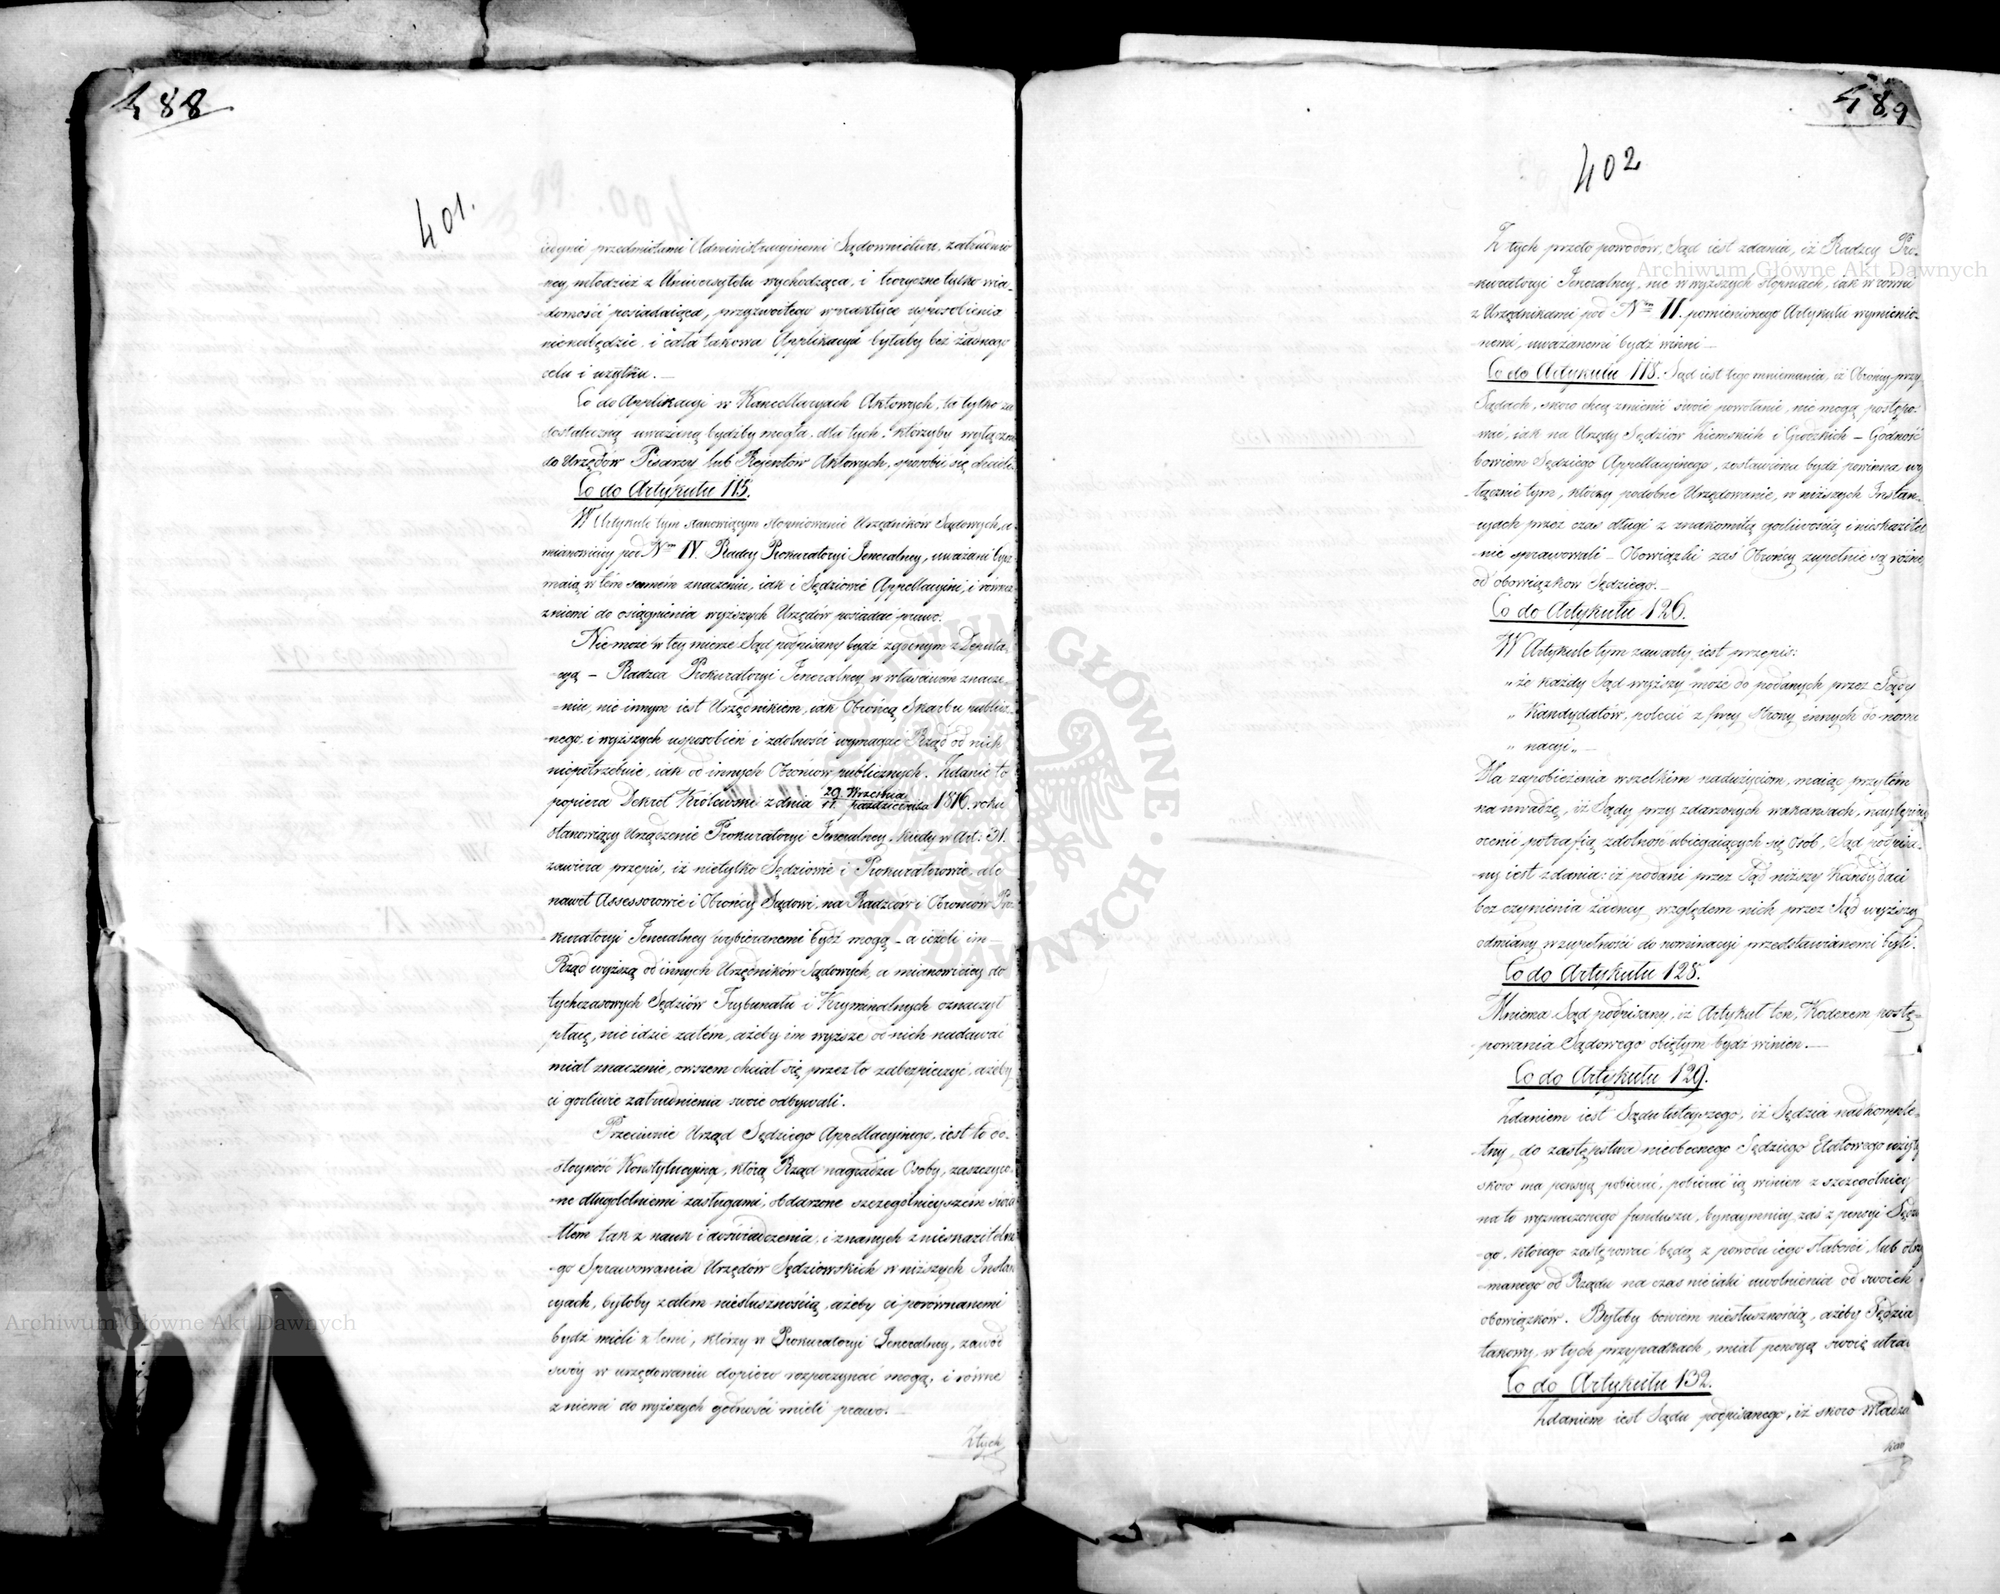 488
401.
iedynie przedmiotami Administracyinemi Sądownictwa, zatrudnio-
ney, młodzież z Uniwersytetu wychodząca, i teoryczne tylko wia-
domości posiadaiąca, przyzwoitego w praktyce usposobienia
nienabędzie, i cała takowa Applikacya byłaby bez żadnego
celu i użytku.—
Co do Applikacyi w Kancellaryach Aktowych, ta tylko za
dostateczną uważaną bydźby mogła, dla tych, którzyby wyłącznie
do Urzędów Pisarzy lub Rejentów Aktowych, sposobić się chcieli.
Co do Artykułu 115.
W Artykule tym stanowiącym stopniowanie Urzędników Sądowych, a
mianowiciey pod Nem IV. Radcy Prokuratoryi Jeneralney, uważani bydź
maią w tém samem znaczeniu, iak i Sędziowie Appellacyini, i równe
z niemi do osiągnienia wyższych Urzędów posiadać prawo.
Nie może w tey mierze Sąd podpisany bydź zgodnym z Deputa-
cyą – Radzca Prokuratoryi Jeneralney, w właściwem znacze-
niu, nie innym iest Urzędnikiem, iak Obrońcą Skarbu publicz-
nego, i wyższych usposobień i zdolności wymagać Rząd od nich
niepotrzebuie, iak od innych Obrońców publicznych. Zdanie to
popiera Dekret Królewski z dnia 29. Września / 11. Października 1816. roku
stanowiący Urządzenie Prokuratoryi Jeneralney, kiedy w Art: 31.
zawiera przepis, iż nietylko Sędziowie i Prokuratorowie, ale
nawet Assessorowie i Obrońcy Sądowi, na Radzców i Obrońców Pro-
kuratoryi Jeneralney wybieranemi bydź mogą – a ieżeli im
Rząd wyższą od innych Urzędników Sądowych, a mianowiciey do
tychczasowych Sędziów Trybunału i Kryminalnych oznaczył
płacę, nie idzie zatém, ażeby im wyższe od nich nadawać
miał znaczenie, owszem chciał się przez to zabezpieczyć, ażeby
ci gorliwie zatrudnienia swoie odbywali.
Przeciwnie Urząd Sędziego Appellacyinego, iest to do-
stoyność Konstytucyina, którą Rząd nagradza Osoby, zaszczyco-
ne długoletniemi zasługami, obdarzone szczególnieyszém świa-
tłem tak z nauk i doświadczenia, i znanych z nieskazitelne-
go Sprawowania Urzędów Sędziowskich w niższych Instan-
cyach, byłoby zatém niesłusznością, ażeby ci porównanemi
bydź mieli z temi, którzy w Prokuratoryi Jeneralney, zawód
swóy w urzędowaniu dopiero rozpoczynać mogą, i równe
z niemi do wyższych godności mieli prawo.—
Z tych
489
402
Z tych przeto powodów, Sąd iest zdania, iż Radzcy Pro-
kuratoryi Jeneralney, nie w wyższych stopniach, iak w równi
z Urzędnikami pod Nem II. pomienionego Artykułu wymienio-
nemi, uważanemi bydź winni—
Co do Artykułu 118. Sąd iest tego mniemania, iż Obrońcy przy
Sądach, skoro chcą zmienić swoie powołanie, nie mogą postępo-
wać, iak na Urzędy Sędziów Ziemskich i Grodzkich – Godność
bowiem Sędziego Appellacyinego, zostawiona bydź powinna wy-
łącznie tym, którzy podobne Urzędowanie, w niższych Instan-
cyach przez czas długi z znakomitą gorliwością i nieskazitel-
nie sprawowali – Obowiązki zaś Obrońcy zupełnie są różne
od obowiązków Sędziego.—
Co do Artykułu 126.
W Artykule tym zawarty iest przepis:
„że każdy Sąd wyższy może do podanych przez Sądy
„Kandydatów, polecić z swey strony innych do nomi
„nacyi„—
Dla zapobieżenia wszelkim nadużyciom, maiąc przytém
na uwadze, iż Sądy przy zdarzonych wakansach, naylepiey
ocenić potrafią zdolność ubiegaiących się Osób, Sąd podpisa-
ny iest zdania: iż podani przez Sąd niższy Kandydaci
bez czynienia żadney względem nich przez Sąd wyższy
odmiany w zupełności do nominacyi przedstawianemi byli.
Co do Artykułu 128.
Mniema Sąd podpisany, iż Artykuł ten, Kodexem postę-
powania Sądowego obiętym bydź winien.—
Co do Artykułu 129.
Zdaniem iest Sądu tuteyszego, iż Sędzia nadkomple-
tny, do zastępstwa nieobecnego Sędziego Etatowego użyty
skoro ma pensyą pobierać, pobierać ią winien z szczególniey
na to wyznaczonego funduszu, bynaymniey zaś z pensyi Sędzie-
go, którego zastępować będą z powodu iego słabości, lub otrzy-
manego od Rządu na czas nieiaki uwolnienia od swoich
obowiązków. Byłoby bowiem niesłusznością, ażeby Sędzia
takowy, w tych przypadkach, miał pensyą swoię utra-
Co do Artykułu 132.
Zdaniem iest Sądu podpisanego, iż skoro Władza
Archiwum Główne Akt Dawnych
Archiwum Główne Akt Dawnych